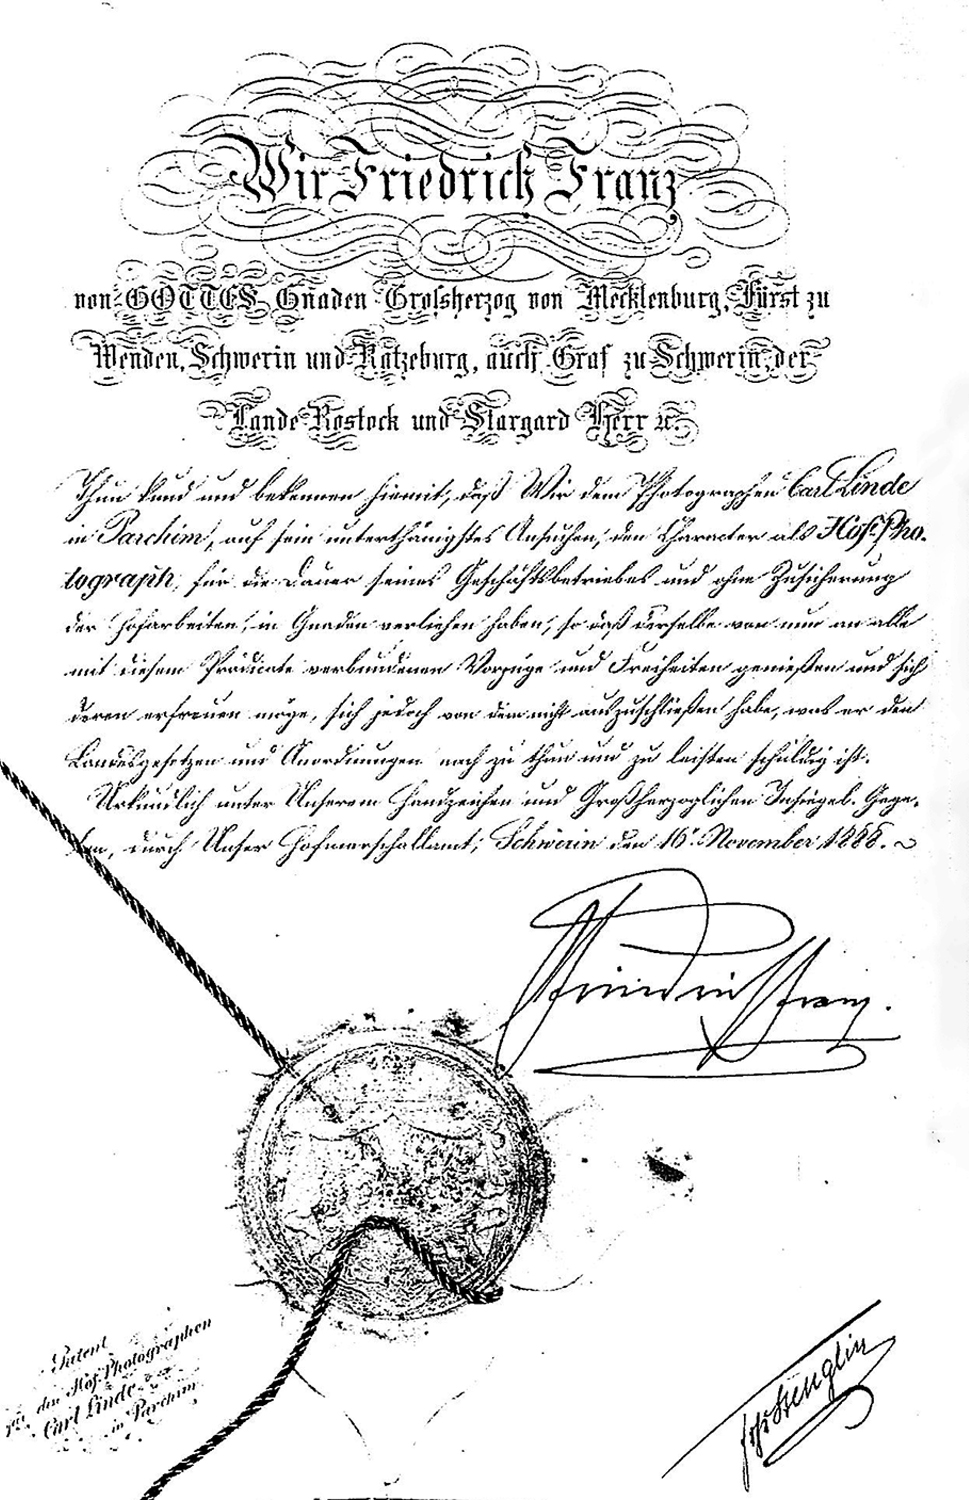 Wir Friedrich Franz
von GOTTES Gnaden Grossherzog von Mecklenburg, Fürst zu
Wenden, Schwerin und Ratzeburg, auch Graf zu Schwerin, der
Lande Rostock und Stargard Herr ꝛc.
Thun kund und bekennen hiemit, daß Wir dem Photographen Carl Linde
in Parchim, auf sein unterthänigstes Ansuchen, den Character als Hof-Pho-
tograph, für die Dauer seines Geschäftsbetriebes und ohne Zusicherung
der Hofarbeiten, in Gnaden verliehen haben, so daß derselbe von nun an alle
mit diesem Prädicate verbundenen Vorzüge und Freiheiten genießen und sich
deren erfreuen möge, sich jedoch von dem nicht auszuschließen habe, was er den
Landesgesetzen und Anordnungen nach zu thun und zu leisten schuldig ist.
Urkundlich unter Unserem Handzeichen und Großherzoglichen Insiegel. Gege-
ben, durch Unser Hofmarschallamt, Schwerin den 16t. November 1888.
Friedrich Franz.
Patent
für den Hof-Photographen
Carl Linde
in Parchim
Stenglin